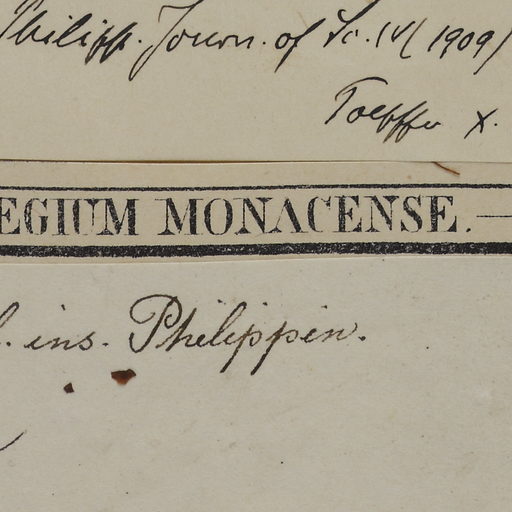 Philipp. Journ. of Sc. IV (1909)
Toepffer X.
EGIUM MONACENSE.
l. ins. Philippin.